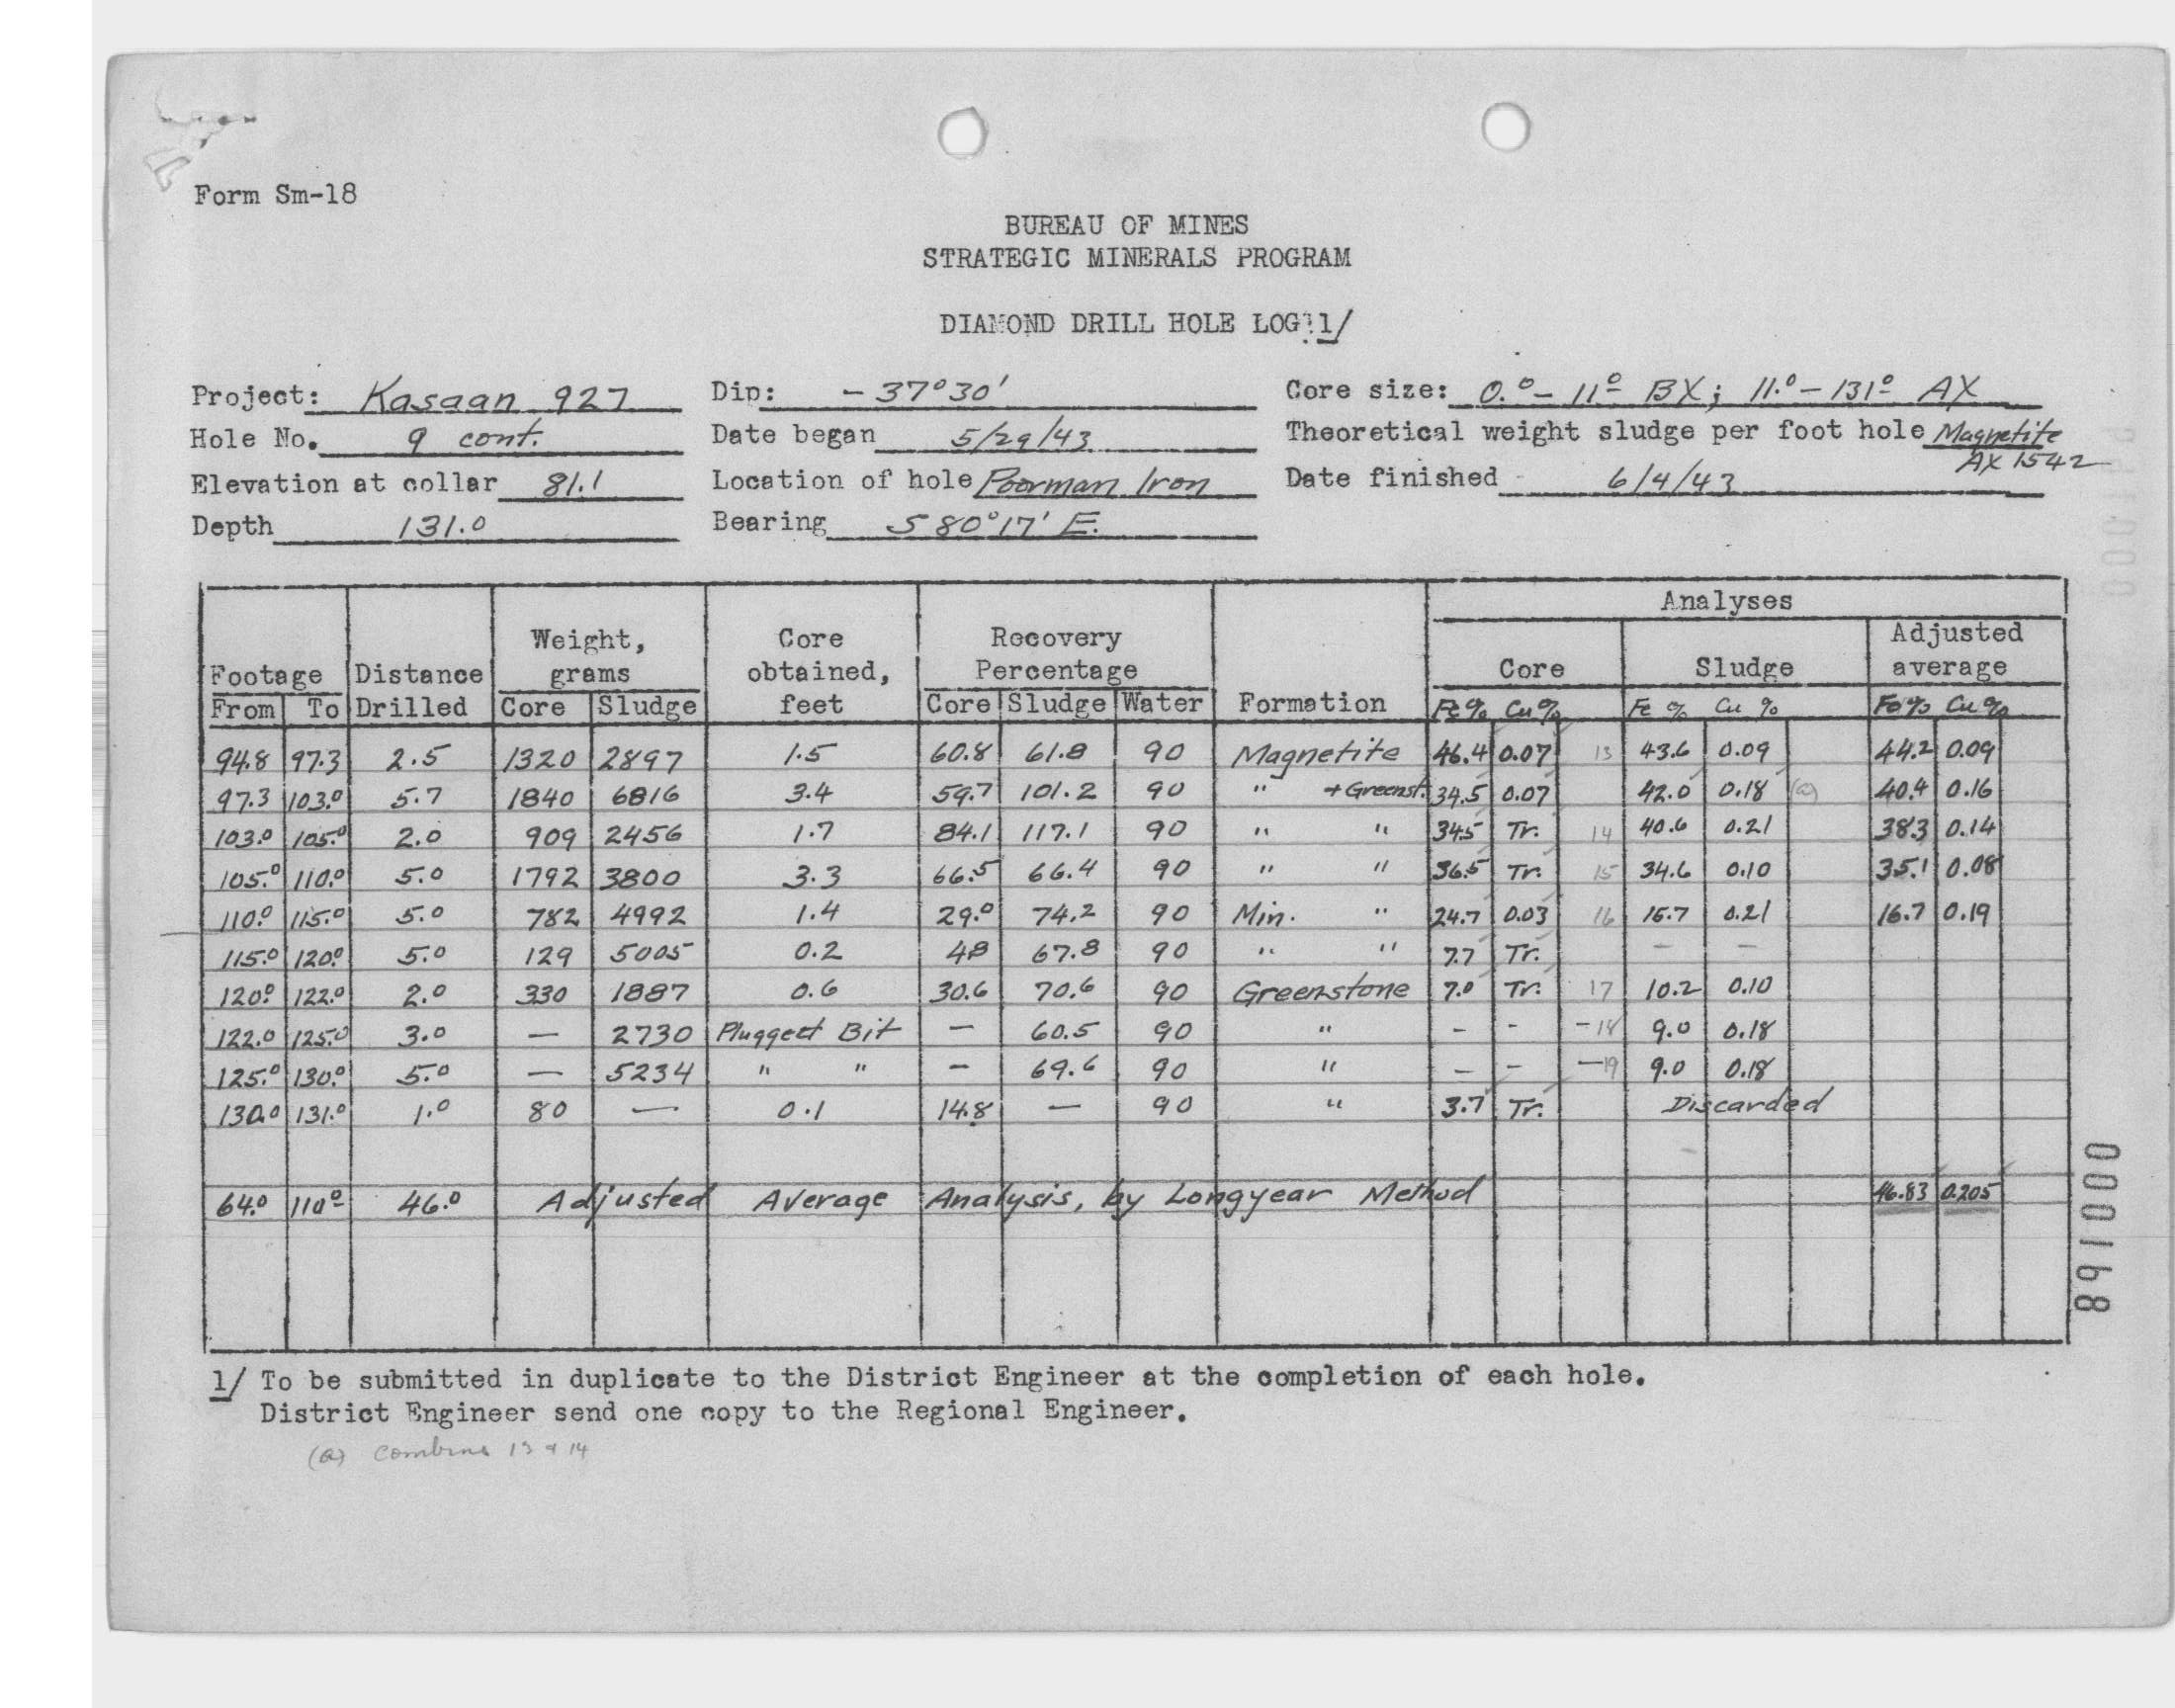 Form Sm-18
BUREAU OF MINES
STRATEGIC MINERALS PROGRAM
DIAMOND DRILL HOLE LOG 1/
Project: Kasaan 927 Dip: - 37°30' Core size: 0.0 - 11.0 BX; 11.0 - 131.0 AX
Hole No. 9 cont. Date began 5/29/43 Theoretical weight sludge per foot hole Magnetite
AX 1542
Elevation at collar 81.1 Location of hole Poorman Iron Date finished 6/4/43
Depth 131.0 Bearing S 80°17' E.
Analyses
Weight, Core Recovery Adjusted
Footage Distance grams obtained, Percentage Core Sludge average
From To Drilled Core Sludge feet Core Sludge Water Formation Fe % Cu % Fe % Cu % Fe % Cu %
94.8 97.3 2.5 1320 2897 1.5 60.8 61.8 90 Magnetite 46.4 0.07 13 43.6 0.09 44.2 0.09
97.3 103.0 5.7 1840 6816 3.4 59.7 101.2 90 " + Greenst. 34.5 0.07 42.0 0.18 (a) 40.4 0.16
103.0 105.0 2.0 909 2456 1.7 84.1 117.1 90 " " 34.5 Tr. 14 40.6 0.21 38.3 0.14
105.0 110.0 5.0 1792 3800 3.3 66.5 66.4 90 " " 36.5 Tr. 15 34.6 0.10 35.1 0.08
110.0 115.0 5.0 782 4992 1.4 29.0 74.2 90 Min. " 24.7 0.03 16 15.7 0.21 16.7 0.19
115.0 120.0 5.0 129 5005 0.2 4.8 67.8 90 " " 7.7 Tr. - -
120.0 122.0 2.0 330 1887 0.6 30.6 70.6 90 Greenstone 7.0 Tr. 17 10.2 0.10
122.0 125.0 3.0 - 2730 Plugged Bit - 60.5 90 " - - - 18 9.0 0.18
125.0 130.0 5.0 - 5234 " " - 69.6 90 " - - - 19 9.0 0.18
130.0 131.0 1.0 80 - 0.1 14.8 - 90 " 3.7 Tr. Discarded
64.0 110.0 46.0 Adjusted Average Analysis, by Longyear Method 46.83 0.205
000168
1/ To be submitted in duplicate to the District Engineer at the completion of each hole.
District Engineer send one copy to the Regional Engineer.
(a) Combine 13 & 14